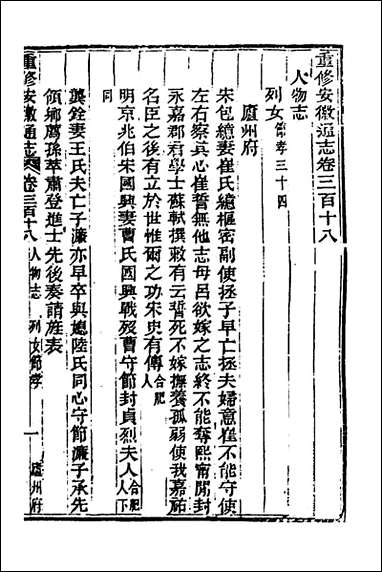 重修安徽通志卷三百十八
人物志
列女 節孝三十四
廬州府
宋包繶妻崔氏繶樞密副使拯子早亡拯夫婦意崔不能守使
左右察其心崔誓無他志母呂欲嫁之志終不能奪熙甯間封
永嘉郡君學士蘇軾撰敕有云誓死不嫁撫養孤弱使我嘉祐
名臣之後有立於世惟爾之功宋史有傳 合肥人
明京兆伯宋國興妻曹氏國興戰歿曹守節封貞烈夫人 合肥人下
同
龔銓妻王氏夫亡子濂亦早卒與媳陸氏同心守節濂子承先
領鄉薦孫萃肅登進士先後奏請旌表
重修安徽通志 卷三百十八 人物志 列女節孝 一 廬州府